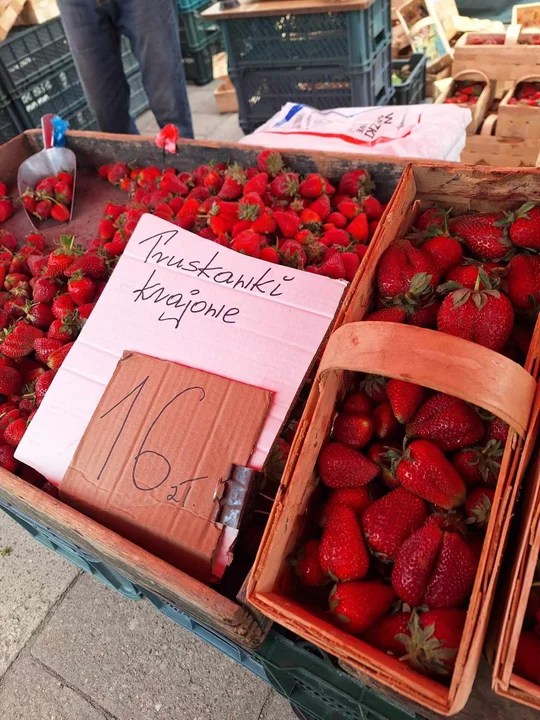 Truskawki
krajowe
16 zł.